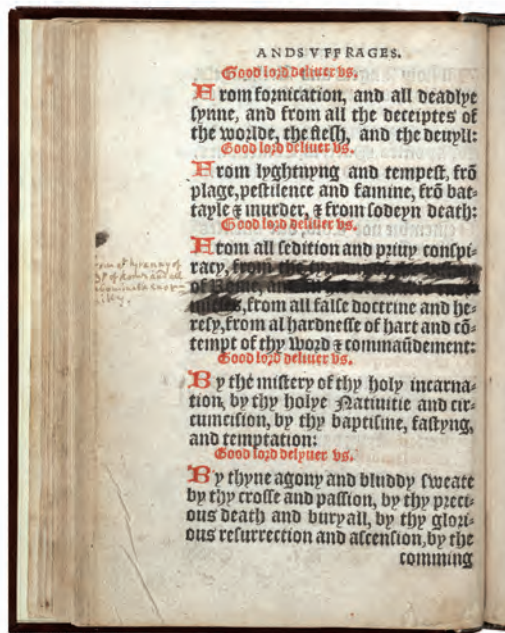 ANDS VFFRAGES.
Good lord deliuer vs.
From fornication, and all deadlye
synne, and from all the deceiptes of
the worlde, the flesh, and the deuyll:
Good lord deliuer vs.
From lyghtnyng and tempest, frō
plage, pestilence and famine, frō bat=
tayle ⁊ murder, ⁊ from sodeyn death:
Good lord deliuer vs.
From all sedition and priuy conspi=
racy, from the
of Rome, and
from all false doctrine and he=
resy, from al hardnesse of hart and cō=
tempt of thy word ⁊ commaūdement:
Good lord deliuer vs.
By the mistery of thy holy incarna=
tion, by thy holye Natiuitie and cir=
cumcision, by thy baptisme, fastyng,
and temptation:
Good lord delyuer vs.
By thyne agony and bluddy sweate
by thy crosse and passion, by thy preci=
ous death and buryall, by thy glori=
ous resurrection and ascension, by the
comming
tyranny of
of Rome and all